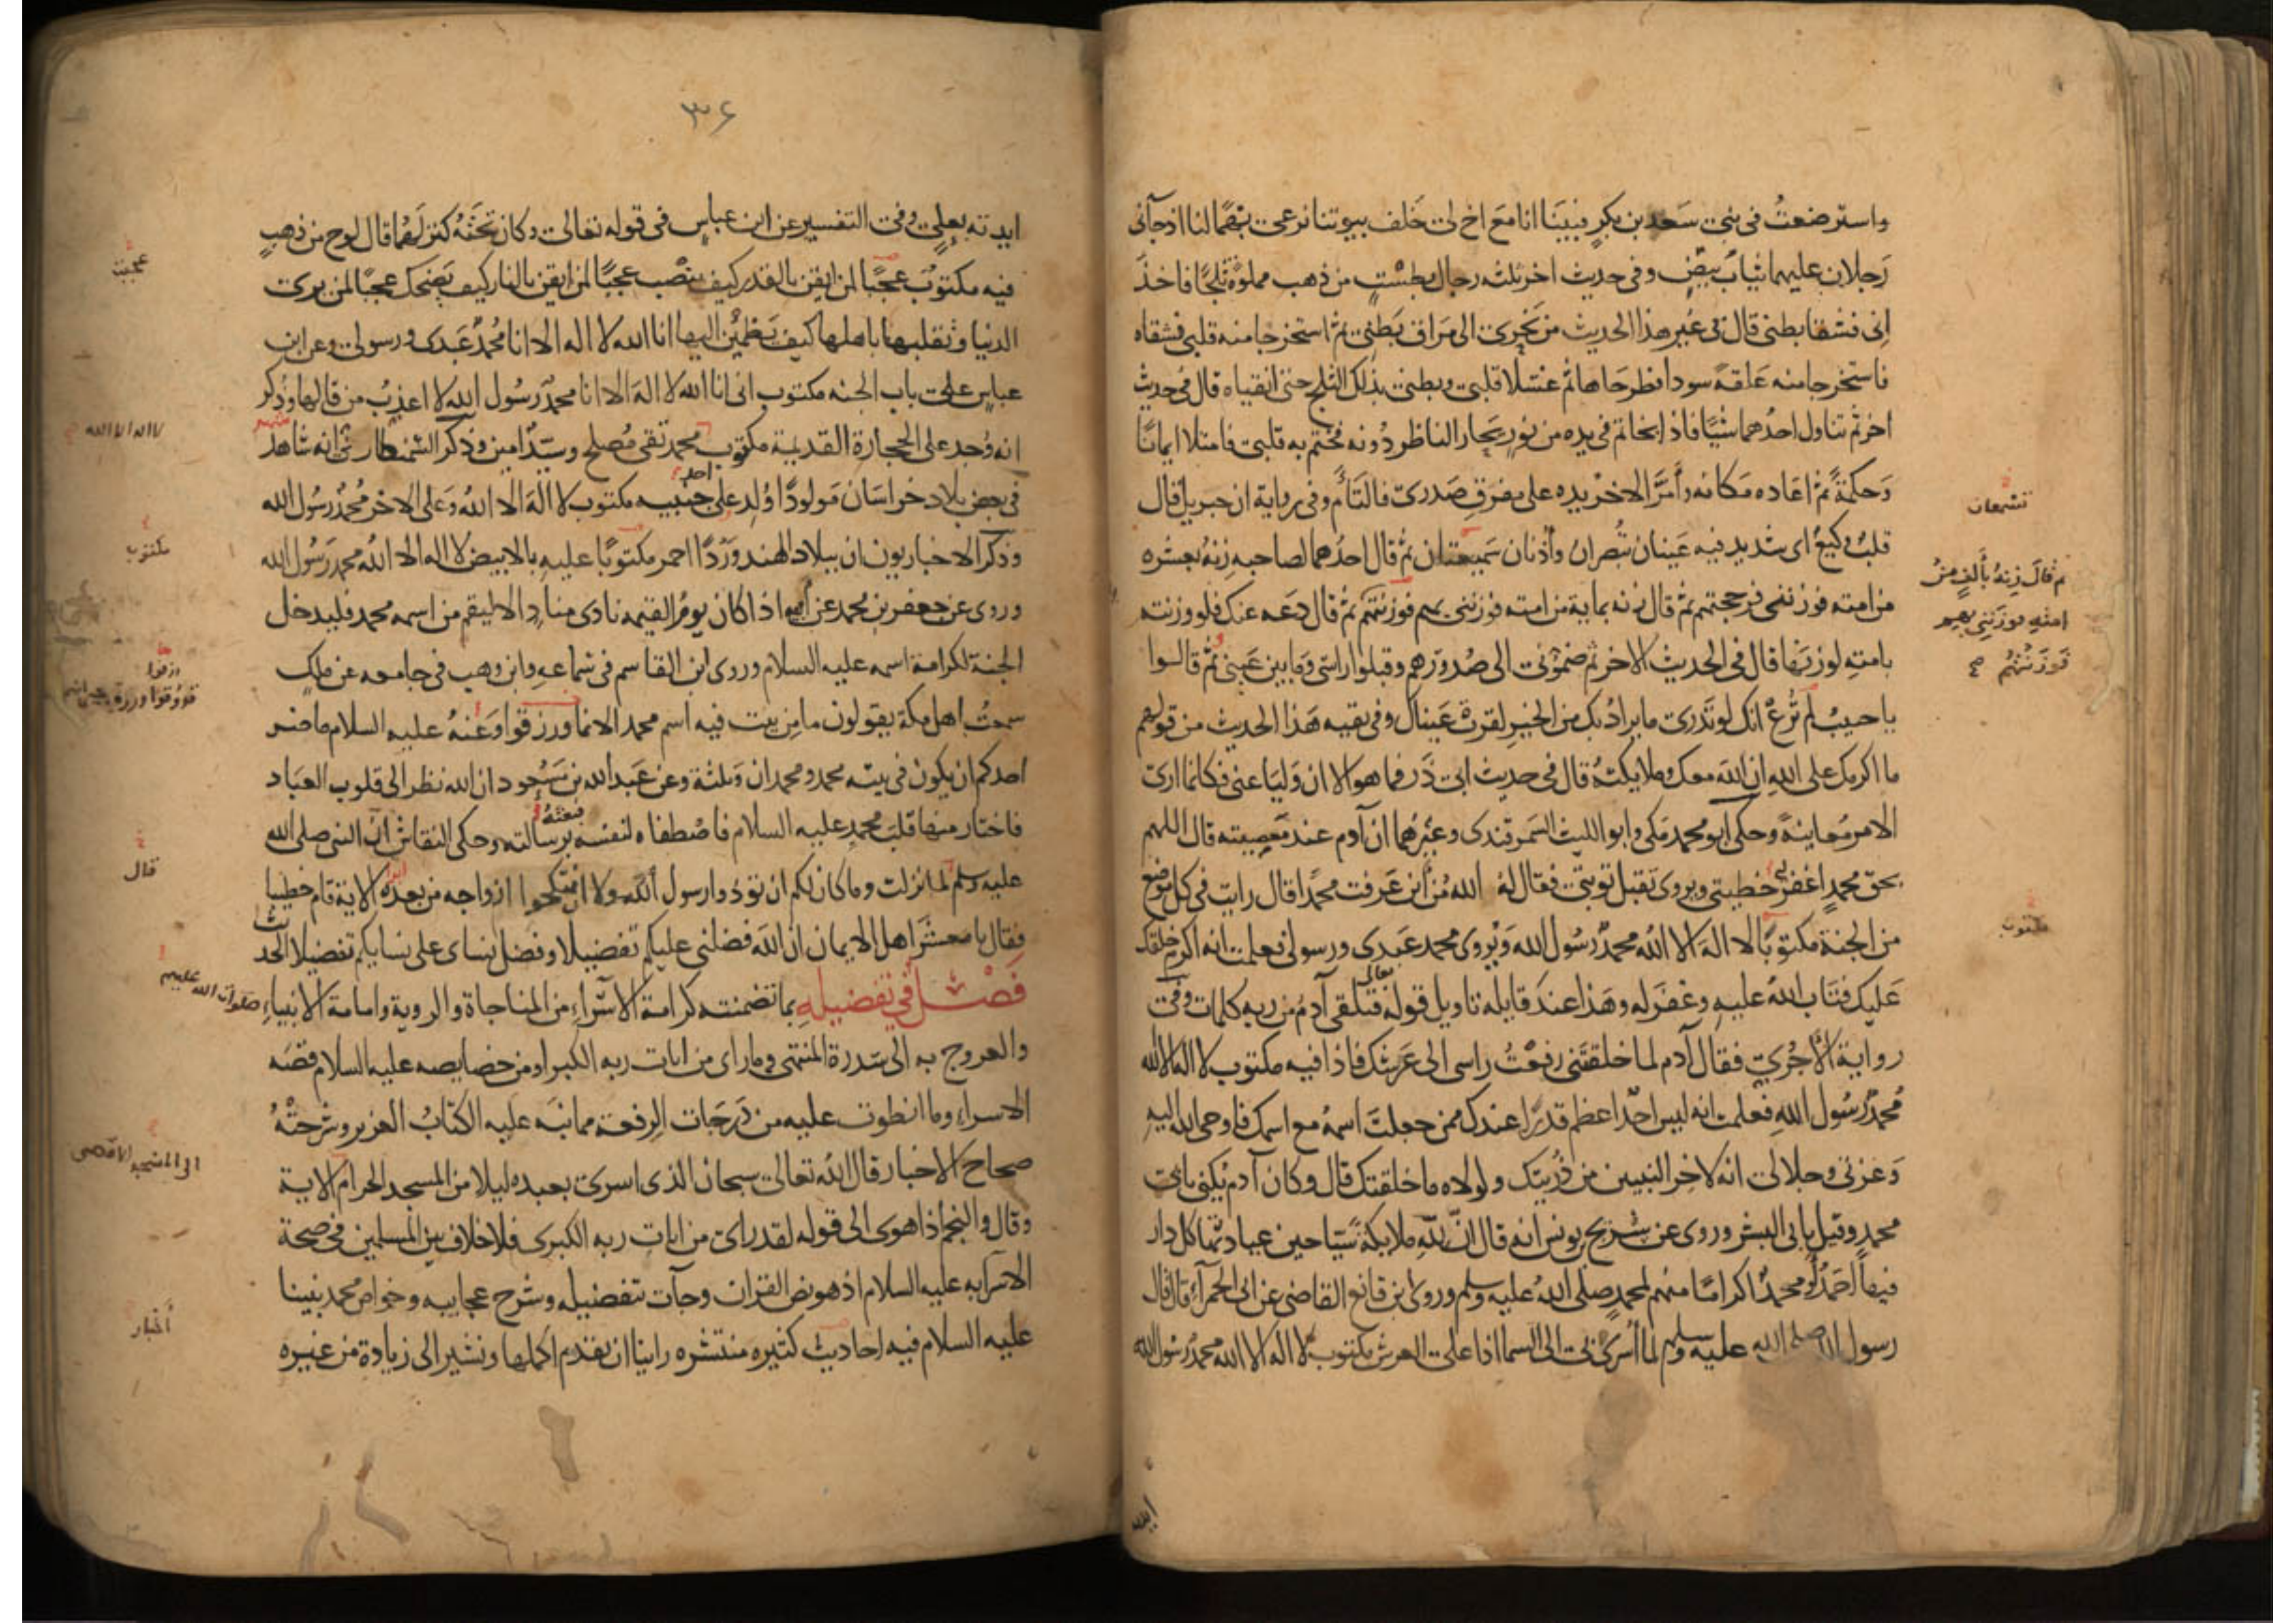 واسترضعتُ في بني سَعد بن بكرٍ فبينَا انا مَعَ اخ لي خَلف بيوتنا نرعى بَهْمًا لنا اذ جآني
رَجلان عليهما ثيابٌ بيضٌ وفي حديث اخر ثلثة رجال بطَسْتٍ من ذهب مملوة ثلجًا فاخذَ
اني فشقا بطني قال في غير هذا الحديث من نحري الى مَراق بَطني ثم استخرجا منه قلبي فشقاه
فاستخرجا منه عَلقةً سودا فطرحَاها ثم غسَلا قلبي وبطني بذلك الثلج حتى انقياه قال في حديث
اخر ثم تناول احدُهما شيًا فاذا بخاتم في يده من نورٍ يَحار الناظر دُونه فختم به قلبي فامتلا ايمانًا
وَحكمةً ثم اعَاده مَكانه وأمَرَّ الاخرُ يده على مفرقِ صَدري فالتَأم وفي رواية ان جبريل قال
قلبٌ وكيعٌ اي شديد فيه عَينان تُبصران وأذنان سَميعتان ثم قال احدُهما لصاحبه زِنهُ بعشره
من امته فوزنني فرجحتهم ثم قال زنه بماية من امته فوزنني بهم فوزنتُهم ثم قال دَعه عنك فلو وزنته
بامتهِ لوزنهَا قال في الحديث الاخر ثم ضموني الى صُدورهم وقبلوا راسي ومَا بين عَيني ثم قالوا
يا حبيبُ لم تُرعْ انك لو تَدري ما يرادُ بك من الخيرِ لقرت عَيناك وفي بقيه هَذا الحديث من قولهم
ما اكرمك على اللهِ ان اللهَ معك وملايكتهُ قال في حديث ابي ذَر فما هو الا ان وَليَا عني فكانما ارى
الامر مُعاينةً وحكى ابو محمد مَكي وابو الليث السَمرقندي وغيرُهما ان آدم عند مَعصِيته قال اللهم
بحق محمدٍ اغفر لي خطيتي ويروى تقبل توبتي فقال له اللهُ من أين عَرفت محمدًا قال رايت في كل موضع
من الجنة مكتوبًا لا الهَ الا اللهُ محمدٌ رسُول الله وَيُروى محمد عَبدي ورسولي فعلمت انه اكرم خلقك
عَليك فتَاب اللهُ عليهِ وغفَر له وهَذا عندَ قايله تاويل قوله تعالى فتلقى آدمُ من ربه كلمات وفي
رواية الآجُري فقال آدم لما خلقتني رفعْتُ راسي الى عَرشك فاذا فيه مكتوب لا اله الا الله
مُحمدٌ رسُول اللهِ فعَلمت انه ليس احدٌ اعظم قدرًا عندك ممن جعلتَ اسمهُ مع اسمك فاوحى الله اليه
وَعزتي وجلالي انه لاخر النبيين من ذُريتك ولولاه ما خلقتك قال وكان آدم يُكنى بابي
محمد وقيل بابي البشر وروى عن سُريج بن يونس انه قال انّ للهِ ملايكةً سَيّاحين عبادتها كل دار
فيها أحمَدُ أو محمدٌ اكرامًا منهم لمحمدٍ صلى اللهُ عليه وسلم وروى ابن قانع القاضي عن ابي الحمرآء قال قال
رسول الله صلى الله عليه وسلم لما أسُري بي الى السما اذا على العرش مكتوب لا اله الا الله محمدٌ رسُول الله
ايدته
تسمعان
ثم قالَ زِنهُ بألفٍ من
امتهِ فوزَنني بهم
فَوزَنتُهم صح
مكتوب
٣٦
ايدته بعليٍ وفي التفسير عن ابن عباسٍ في قوله تعالى وكان تحتَهُ كنز لَهما قال لوح من ذهبٍ
فيه مكتوبٌ عجبًا لمن ايقن بالقدر كيف ينصب عجبًا لمن ايقن بالنار كيف يَضحك عجبًا لمن يرى
الدنيا وتقلبها باهلها كيف يَطمئن اليها انا الله لا اله الا انا مُحمدٌ عَبدي ورسولي وعن ابن
عباسٍ على باب الجنه مكتوب اني انا الله لا الهَ الا انا محمدٌ رَسُول الله لا اعذب من قالها وذُكر
انه وُجد على الحجارة القديمة مكتوب محمد تقي مُصلح وسَيّد امين وذكر السمنطاري انه شاهد
في بعض بلاد خراسَان مَولودًا وُلد على احد جنبيه مكتوب لا الهَ الا اللهُ وَعلى الاخر مُحمدٌ رسُول الله
وذكر الاخباريون ان ببلاد الهند وَردًا احمر مكتوبًا عليه بالابيض لا اله الا اللهُ محمد رَسُول الله
وروى عن جعفر بن محمد عن أبيه اذا كان يومُ القيمه نادى منادٍ الا ليقم من اسمه محمد فليدخل
الجنة لكرامة اسمه عليه السلام وروى ابن القاسم في سَماعهِ وابن وهب في جامعه عن ملك
سمعتُ اهل مكة يقولون ما من بيت فيه اسم محمد الا نما ورزقوا وَعَنهُ عليه السلام ما ضر
احدكم ان يكون في بيته محمد ومحمدان وَثلثة وعن عَبد الله بن مسَعود ان الله نظر الى قلوب العبَاد
فاختار منها قلبَ محمدٍ عليه السلام فاصْطفاه لنفسه فبعثهُ برسالته وحكى النقاش أن النبي صلى الله
عليه وسلم لما نزلت وما كان لكم ان توذوا رسول اللهِ ولا ان تنكحوا ازواجه من بعده ابدا الاية قام خطيبا
فقال يا معشَرَ اهل الايمان ان اللهَ فضلني عليكم تفضيلا وفضل نساي على نسايكم تفضيلا الحديث
فصْل في تفضيلهِ بما تضمنته كرامة الاسْراءِ من المناجاة والروية وامامة الانبياءِ صلوات الله عليهم
والعروج به الى سدرة المنتهى وما راى من ايات ربه الكبرى ومن خصايصه عليه السلام قصَه
الاسراءِ وما انطوت عليه من دَرجَات الرفعة مما نبَه عليه الكتابُ العزيز وشرَحتْهُ
صحاح الاخبار قال اللهُ تعالى سبحان الذي اسرى بعبده ليلا من المسجد الحرام الاية
وقال والنجم اذا هوى الى قوله لقد راى من ايات ربه الكبرى فلا خلاف بين المسلمين في صحة
الاسرآ به عليه السلام اذ هو نص القران وجآت بتفضيله وشرح عجايبه وخواص محمد نبينا
عليه السلام فيه احاديث كثيره منتشره راينا ان نقدم اكملها ونشير الى زيادة من غيره
عجبت
لا اله الا الله
مكتوب
ورزقوا
قال
الى المسجد الاقصى
أخبار